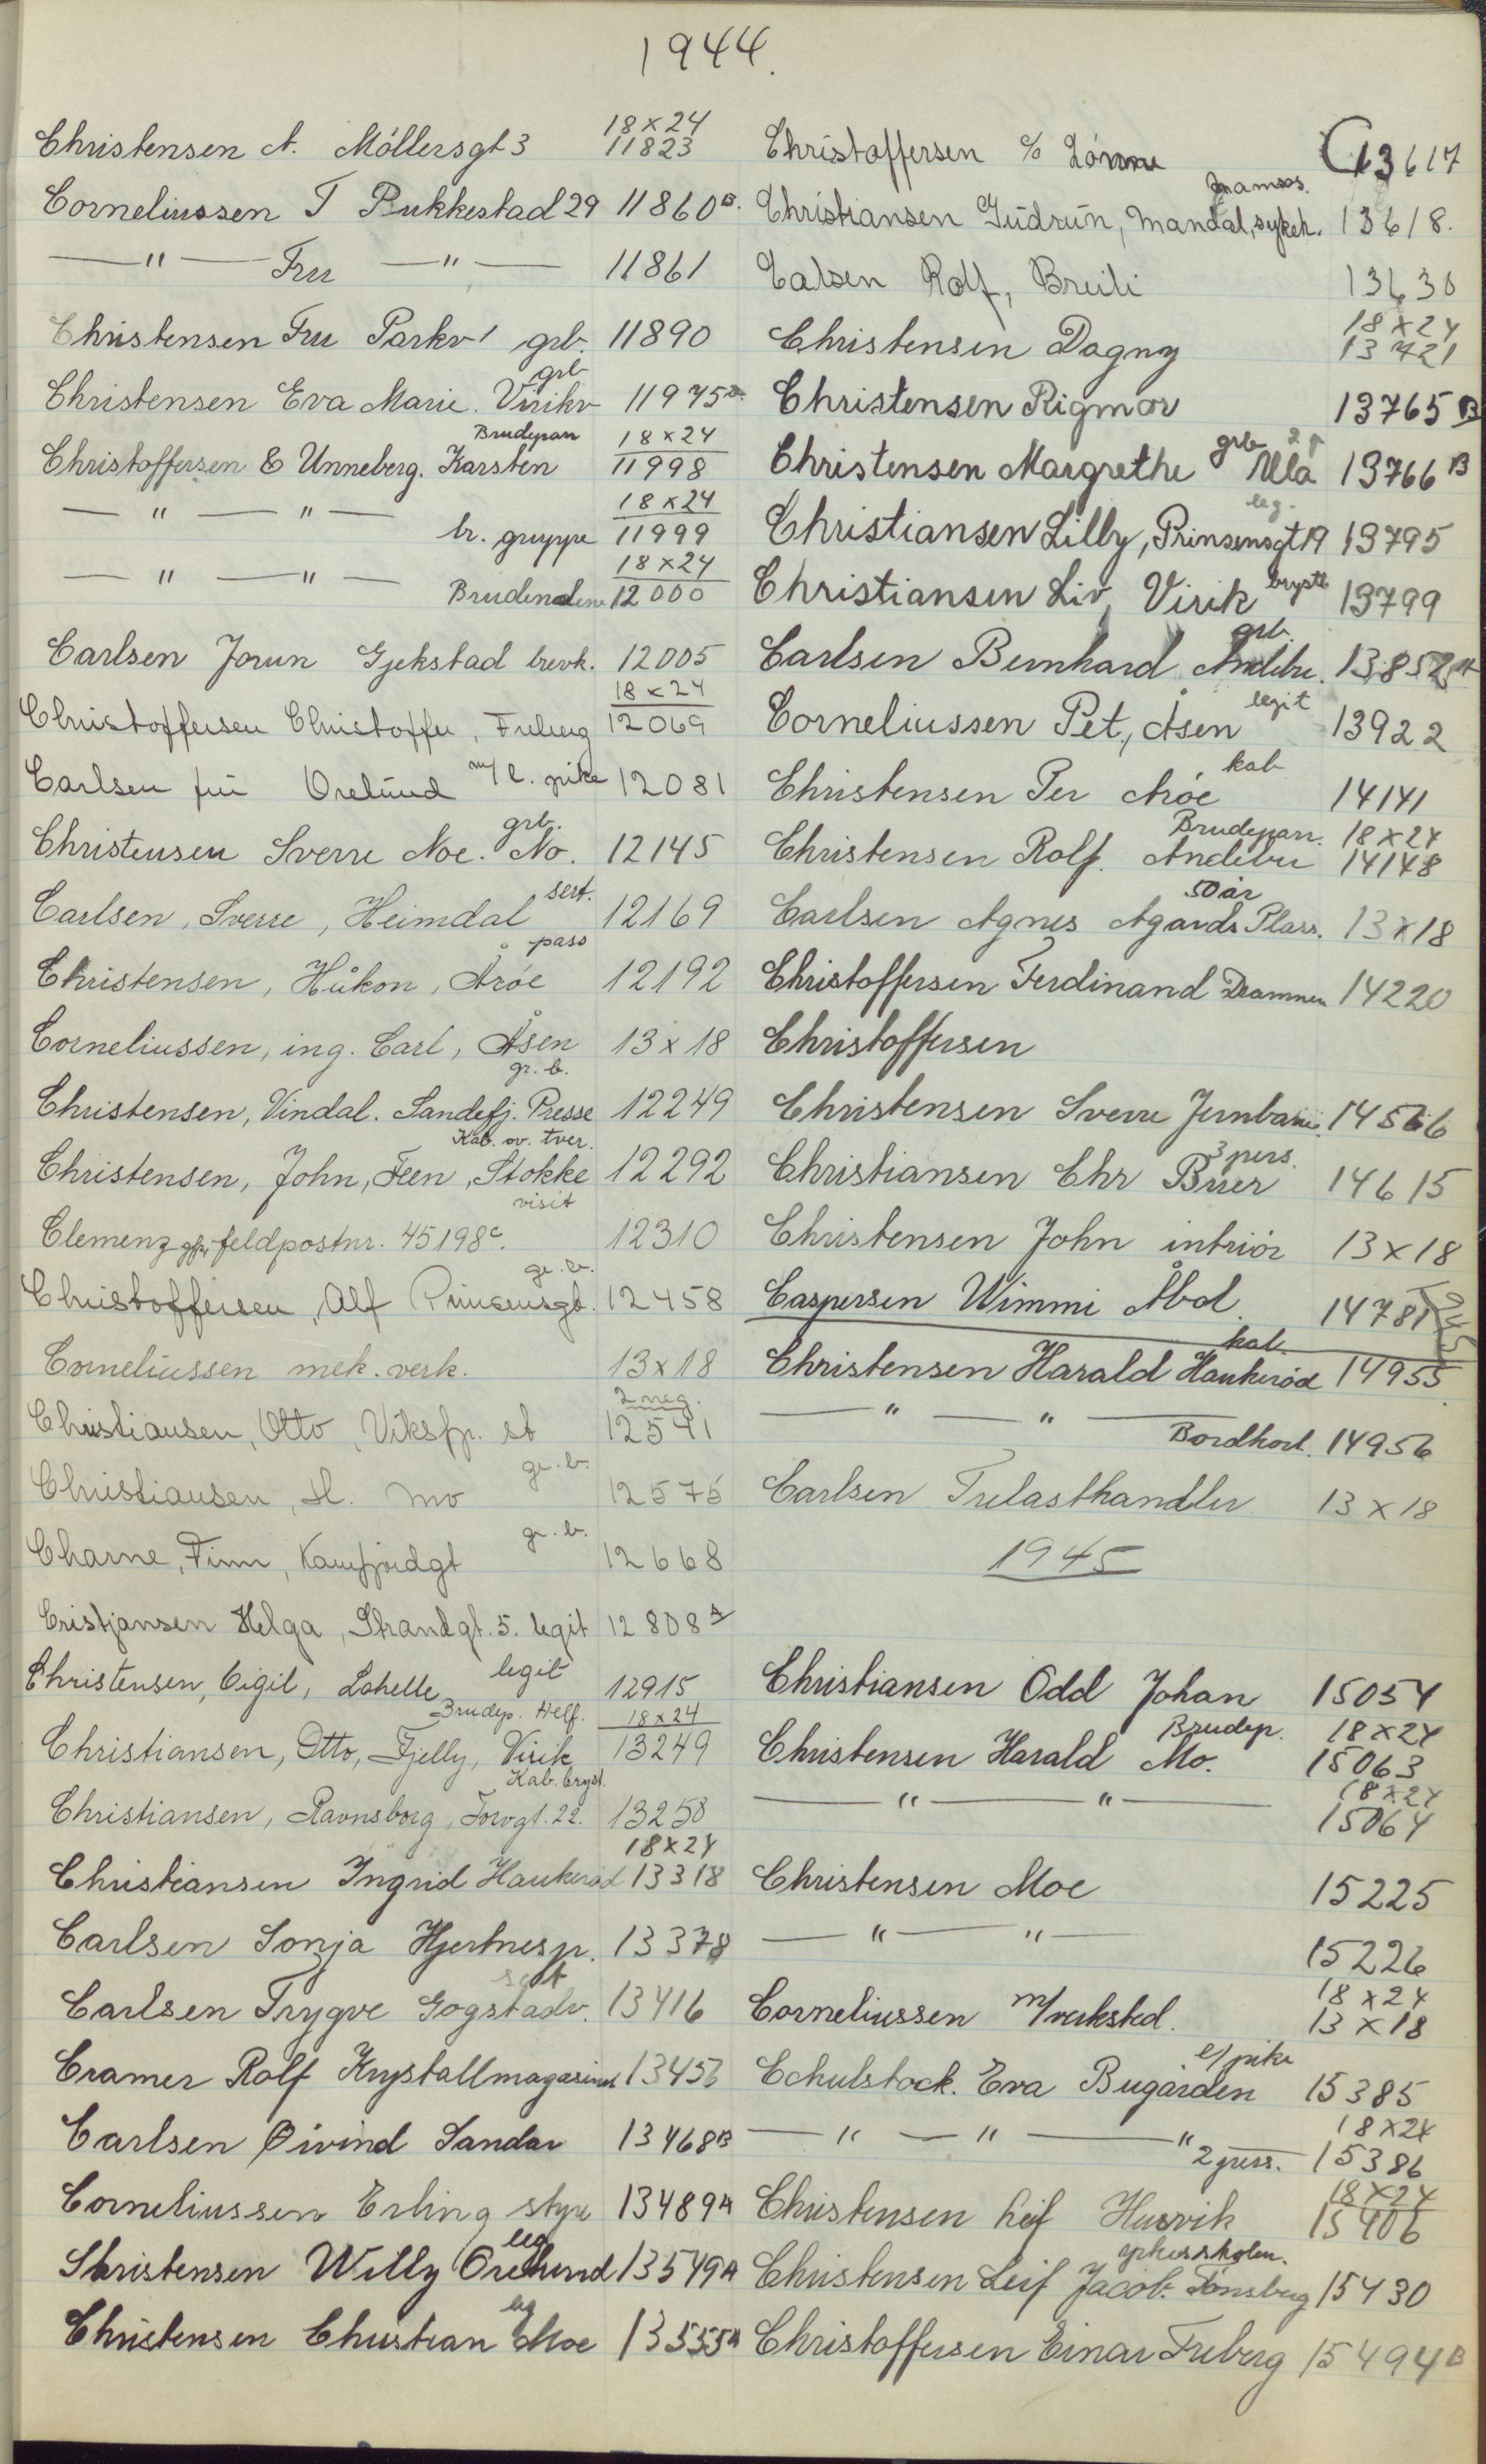 1944.
Christensen A. Möllersgt 3 18×24 11823
Corneliussen T Pukkestad 29 11860 B.
— " — Fru — " — 11861
Christensen Fru Parkv 1 grb. 11890
Christensen Eva Marie. Virikv grb 11975
Christoffersen & Unneberg. Karsten Brudepar 18×24 11998
— " — " — br. gruppe 18×24 11999
— " — " — Bruden alene 18×24 12000
Carlsen Jorun Gjekstad brevk. 12005
Christoffersen Christoffer, Freberg 18×24 12069
Carlsen fru Orelund m/ l. pike 12081
Christensen Sverre Moe. No. grb. 12145
Carlsen, Sverre, Heimdal sert. 12169
Christensen, Håkon, Åröe pass 12192
Corneliussen, ing. Carl, Åsen 13×18
Christensen, Vindal. Sandefj. Presse gr. b. 12249
Christensen, John, Feen, Stokke Kab. ov. tver. 12292
Clemenz gfr. feldpostnr. 45198c. visit 12310
Christoffersen, Alf Prinsensgt. gr. b. 12458
Corneliussen mek. verk. 13×18
Christiansen, Otto, Viksfj. st 2 neg. 12541
Christiansen, H. Mo gr. b. 12575
Charne, Finn, Kamfjordgt gr. b. 12668
Cristjansen Helga, Strandgt. 5. legit 12808 A
Christensen, Eigil, Lahelle legit 12915
Christiansen, Otto, Fjelly, Virik Brudep. Helf. 18×24 13249
Christiansen, Ravnsborg, Torvgt. 22. Kab. bryst. 13250
Christiansen Ingrid Haukerød 18×24 13318
Carlsen Sonja Hjertnesp. 13378
Carlsen Trygve Gogstadv. sert 13416
Cramer Rolf Krystallmagasinet 13456
Carlsen Øivind Sandar 13468 B
Corneliussen Erling styr 13489 A
Christensen Willy Orelund leg 13549 A
Christensen Christian Moe leg 13555 A
Christoffersen c/o Lönne C 13617
Christiansen Gudrun, Mandal, sykeh. Namsos. 13618.
Calsen Rolf, Breili 13630
Christensen Dagny 18×24 13721
Christensen Rigmor 13765 B
Christensen Margrethe grb Ula 2 p 13766 B
Christiansen Lilly, Prinsensgt 19 leg. 13795
Christiansen Liv, Virik brystb 13799
Carlsen Bernhard Andebu. grb. 13852 A
Corneliussen Pet, Åsen legit 13922
Christensen Per Aröe kab 14141
Christensen Rolf. Andebu Brudepar. 18×24 14148
Carlsen Agnes Agards Plass. 50 år 13×18
Christoffersen Ferdinand Drammen 14220
Christoffersen
Christensen Sverre Jernbane. 14566
Christiansen Chr Buer 3 pers. 14615
Christensen John intriör 13×18
Caspersen Wimmi Åbol 14781
Christensen Harald Haukerød kab. 14955
— " — " — Bordkort. 14956
Carlsen Trelasthandler 13×18
1945
Christiansen Odd Johan 15054
Christensen Harald Mo. Brudep. 18×24 15063
— " — " — 18×24 15064
Christensen Moe 15225
— " — " — 15226
Corneliussen m/verksted. 18×24 13×18
Cchulstock. Eva Bugården l/pike 15385
— " — " — " 2 pers. 18×24 15386
Christensen Leif Husvik 18×24 15406
Christensen Leif Jacob. Tønsberg yrkesskolen. 15430
Christoffersen Einar Freberg 15494 B